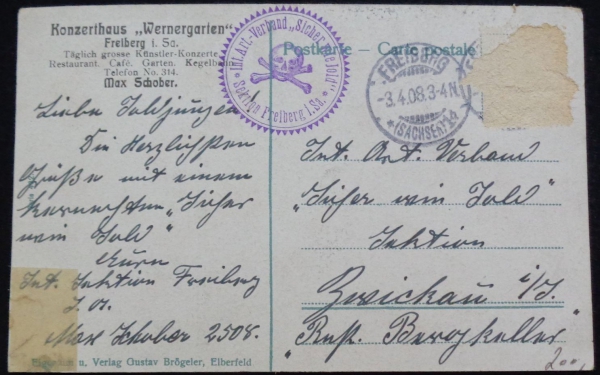 Konzerthaus „Wernergarten"
Freiberg i. Sa.
Täglich grosse Künstler-Konzerte
Restaurant. Café. Garten. Kegelb
Telefon No. 314.
Max Schober.
Int. Art.-Verband „Sicher wie Jold"
Sektion Freiberg i. Sa.
Postkarte – Carte postale
FREIBERG
-3.4.08.3-4N.
*(SACHSEN)*
Liebe Joldjungen!
Die Herzlichsten
Grüße mit einem
kernechten „Sicher
wie Jold"
Eure
Int. Sektion Freiberg
Max Schober 2508.
Int. Art. Verband
„Sicher wie Jold"
Sektion
Zwickau i/S.
„Rest. Bergkeller"
u. Verlag Gustav Brögeler, Elberfeld